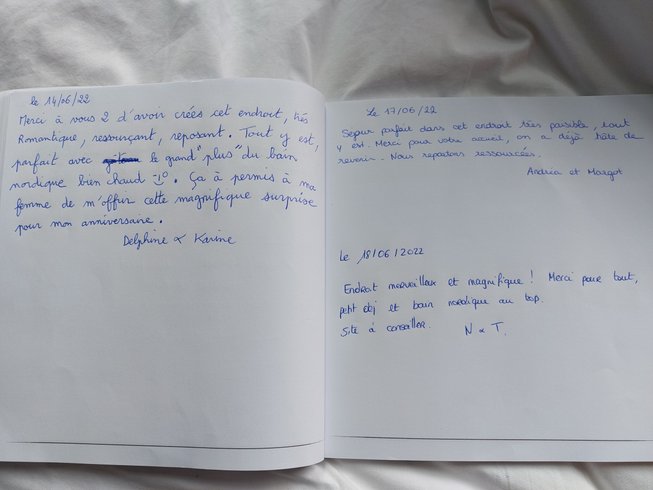 le 14/06/22
Merci à vous 2 d'avoir crées cet endroit, très
Romantique, ressourçant, reposant. Tout y est,
parfait avec le grand "plus" du bain
nordique bien chaud. Ça à permis à ma
femme de m'offrir cette magnifique surprise
pour mon anniversaire.
Delphine & Karine
Le 17/06/22
Sejour parfait dans cet endroit très paisible, tout
y est. Merci pour votre accueil, on a déjà hâte de
revenir. Nous repartons ressourcées.
Andréa et Margot
Le 18/06/2022
Endroit merveilleux et magnifique ! Merci pour tout,
petit dej et bain nordique au top.
Site à conseiller. N & T.